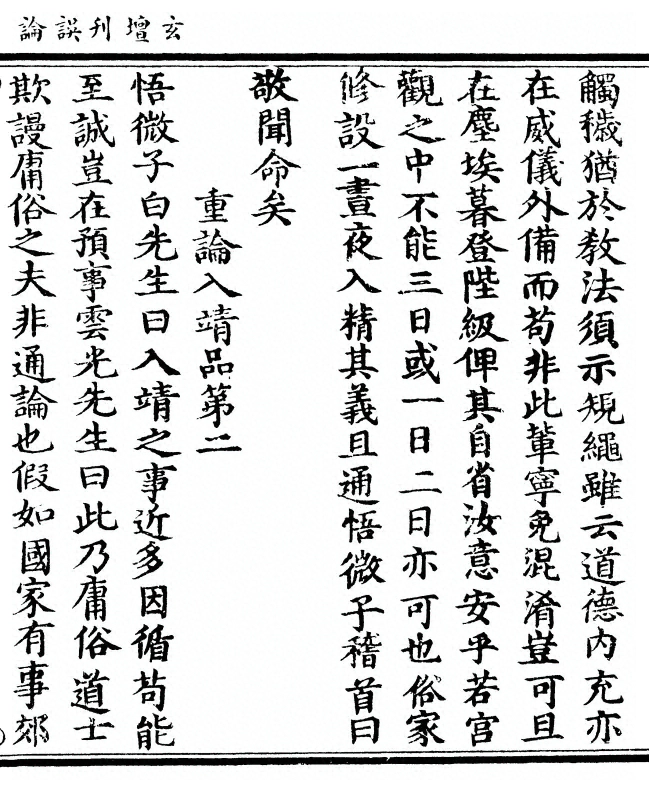 玄壇刊誤論
觸穢猶於教法須示規繩雖云道德內充亦
在威儀外備而苟非此輩寧免混淆豈可旦
在塵埃暮登陛級俾其自省汝意安乎若宮
觀之中不能三日或一日二日亦可也俗家
修設一晝夜入精其義且通悟微子稽首曰
敬聞命矣
重論入靖品第二
悟微子白先生曰入靖之事近多因循苟能
至誠豈在預事雲光先生曰此乃庸俗道士
欺謾庸俗之夫非通論也假如國家有事郊